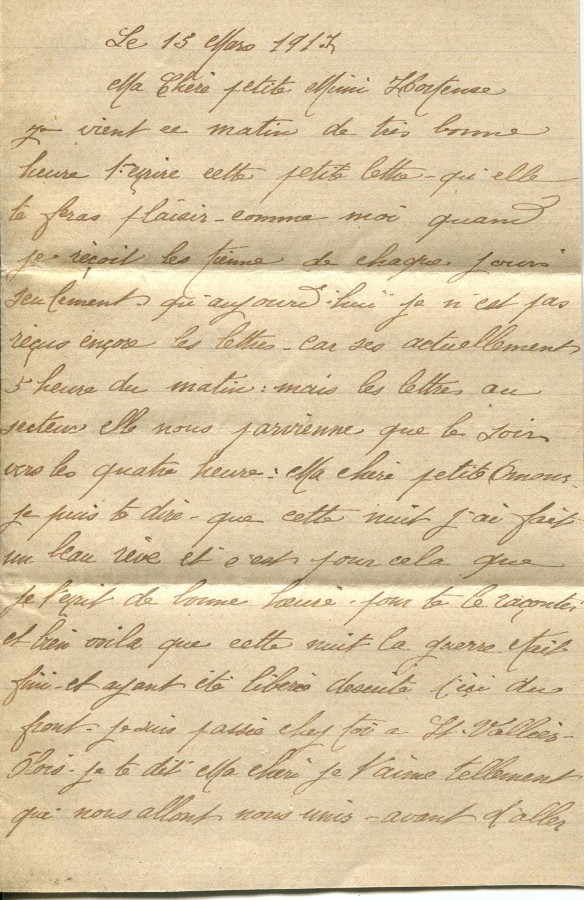 Le 13 Mars 1917
Ma Chère petite Mimi Hortense
je vient ce matin de très bonne
heure t'eçrire cette petite lettre - qui elle
te feras plaisir - comme moi quand
je reçoit les tienne de chaque jours
seulement qu'aujourd'hui je n'est pas
reçus ençore les lettres - car ses actuellement
5 heure du matin : mais les lettres au
secteur elle nous parvienne que le soir
vers les quatre heure : Ma chère petite Amour -
je puis te dire - que cette nuit j'ai fait
un beau rêve et c'est pour cela que
je t'eçrit de bonne heure - pour te le raçonté
et bien voila que cette nuit la guerre était
fini - et ayant été libéré desuite d'içi du
front - je suis passée chez toi a St. Vallier -
Alors - je te dit Ma chère je t'aime tellement
que nous allont nous unir - avant d'aller